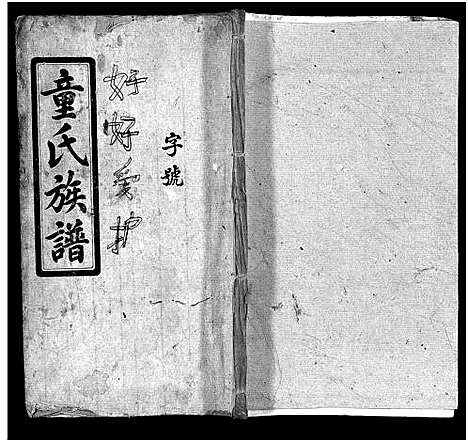 童氏族譜
好好爱护
字號